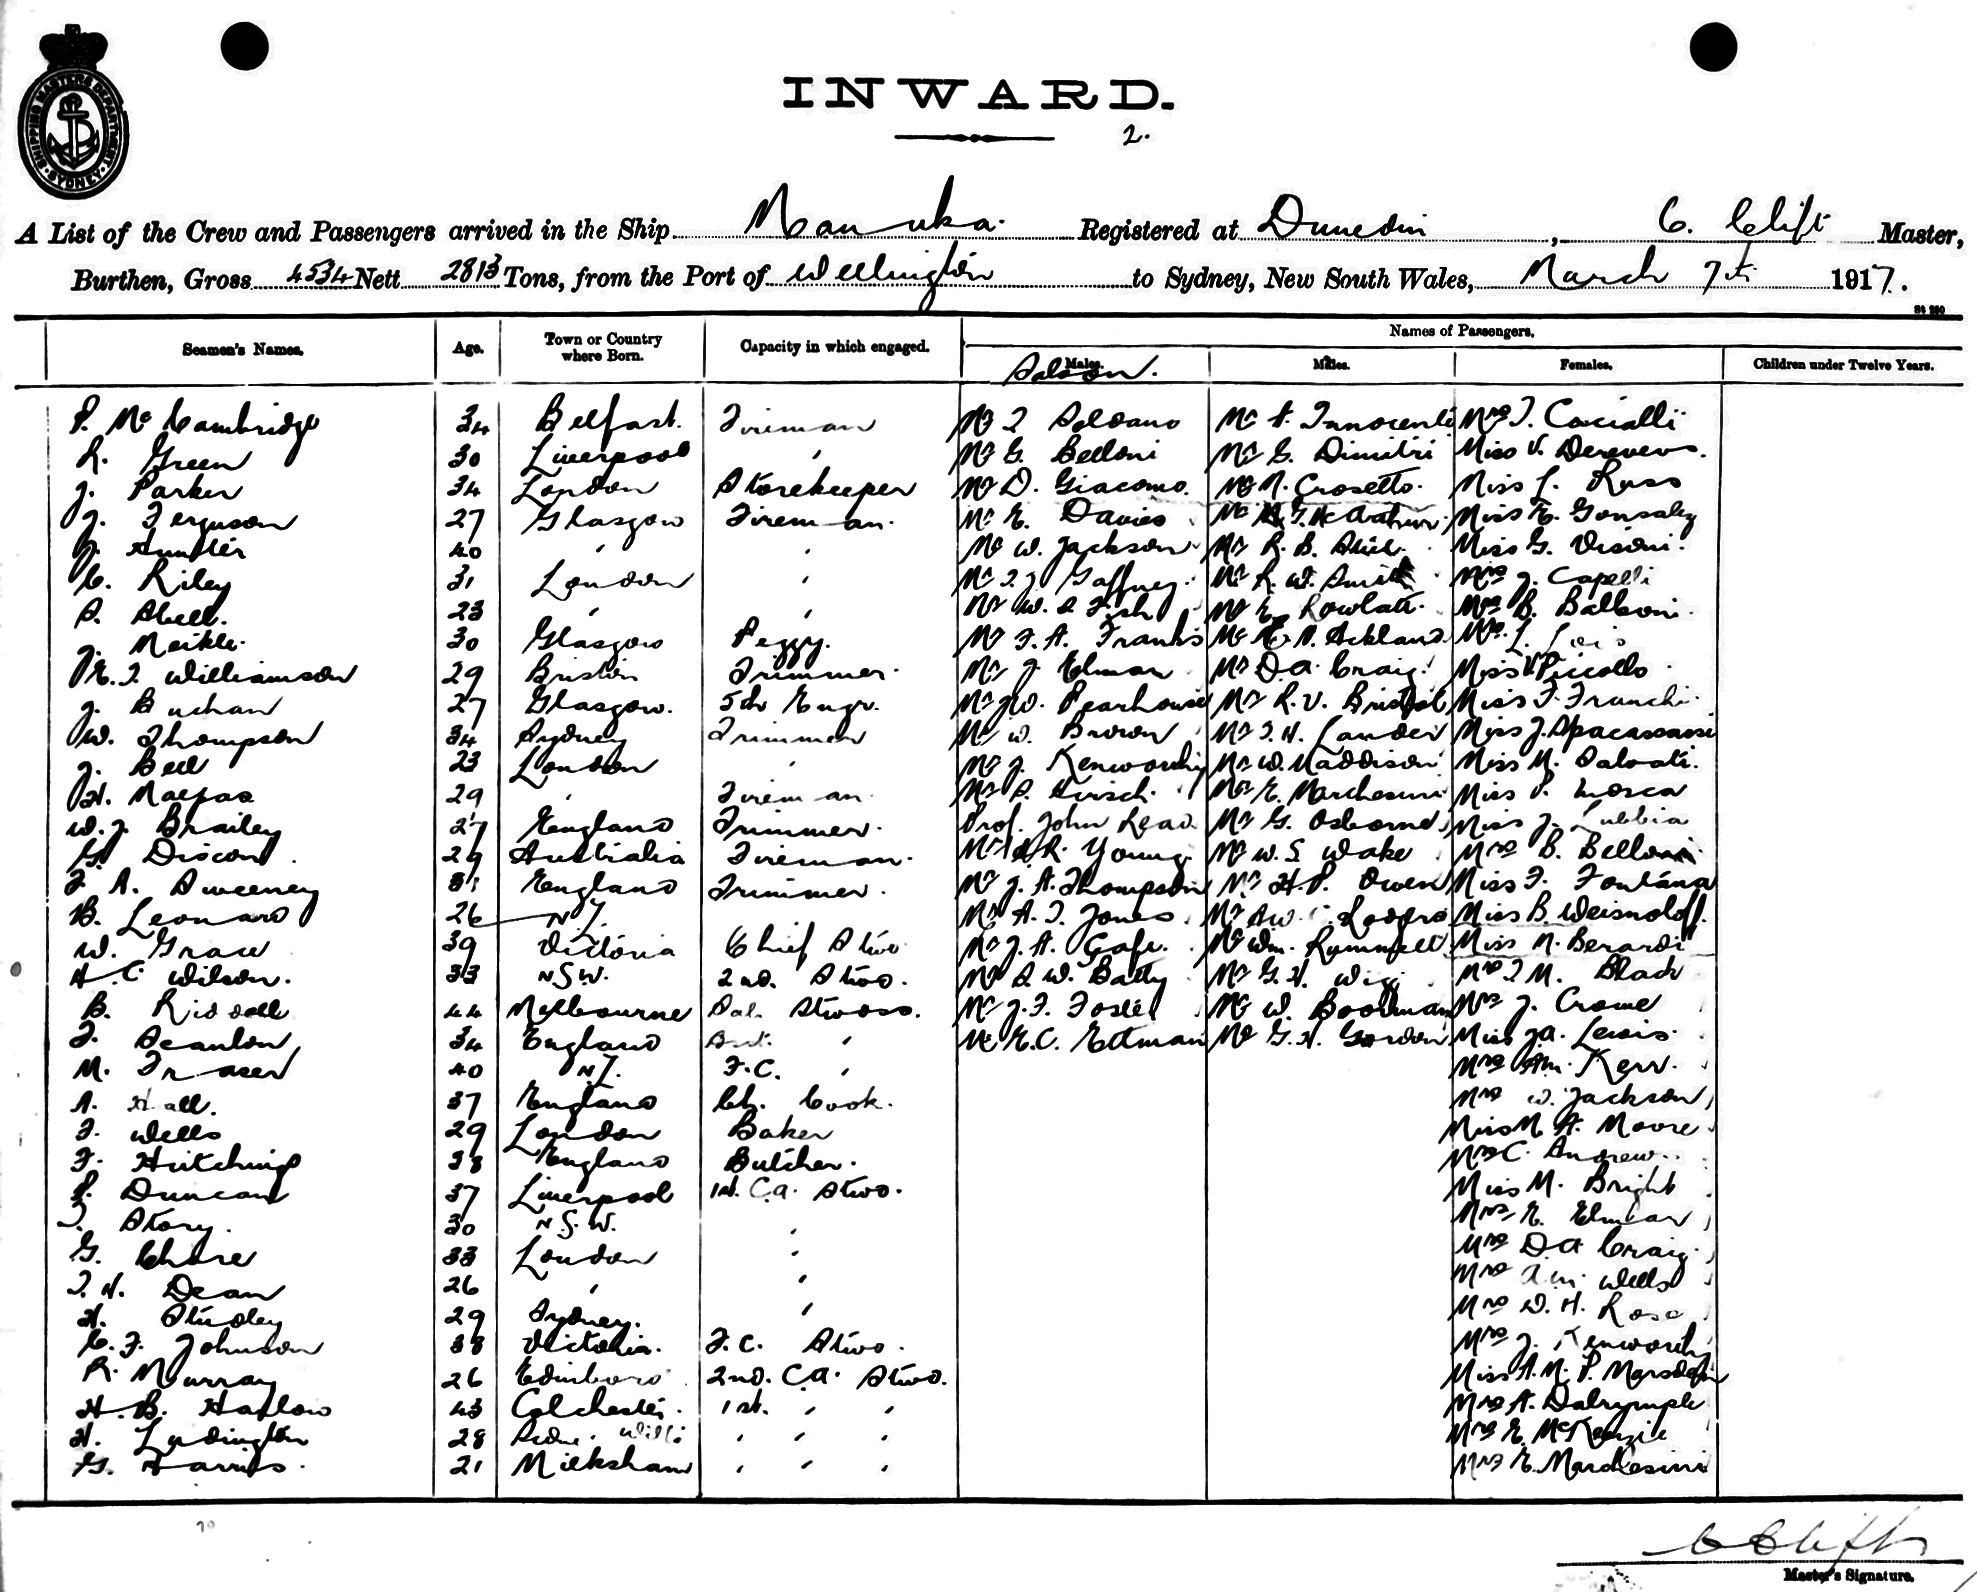 SHIPPING MASTERS DEPARTMENT
SYDNEY
INWARD.
2.
A List of the Crew and Passengers arrived in the Ship Manuka. Registered at Dunedin, C. Clift Master,
Burthen, Gross 4534 Nett 2813 Tons, from the Port of Wellington to Sydney, New South Wales, March 7th 1917.
St 290
Seamen's Names. Age. Town or Country where Born. Capacity in which engaged. Names of Passengers.
Males. Saloon. Males. Females. Children under Twelve Years.
P. McCambridge 34 Belfast. Fireman Mr T Soldano Mr A. Innocenti Mrs T. Cacialli
R. Green 30 Liverpool " Mr G. Belloni Mr G. Dimitri Miss V. Derevers.
J. Parker 34 London Storekeeper Mr D. Giacomo. Mr N. Crosetto. Miss L. Russ
J. Ferguson 27 Glasgow Fireman. Mr E. Davies Mr McArthur. Miss E. Gonsalez
J. Hunter 40 " " Mr W. Jackson Mr R. B. Miss G. Visoni.
C. Riley 31 London " Mr T. J. Gaffney. Mr R. W. Smith Mrs J. Capelli
S. Abell. 23 " " Mr W. S Fish Mr E. Rowlatt. Mrs B. Balboni.
J. Meikle. 30 Glasgow Peggy. Mr F. A. Franks Mr N. Ackland. L. Lois
E. T. Williamson 29 Bristol Trimmer. Mr J. Elman Mr D. A. Craig. Miss V. Piccollo
J. Buchan 27 Glasgow. 5th Engr. Mr J. W. Pearhouse Mr R. V. Miss F. Franchi.
W. Thompson 34 Sydney Trimmer Mr W. Brown Mr T. H. Lander Miss J. Spacassassi
J. Bell 23 London " Mr J. Kenworthy Mr W. Maddison Miss M. Salvati.
H. Malpas 29 " Fireman. Mr S. Hirsch. Mr E. Marchesini Miss P. Mosca
W. J. Brailey 27 England Trimmer. Prof. John Read Mr G. Osborne Miss J. Lubbia
G. Discon. 29 Australia Fireman. Mr R. Young. Mr W. S. Wake Mrs B. Belloni
F. A. Sweeney 31 England Trimmer. Mr J. A. Thompson Mr H. P. Owen Miss F. Fontana
B. Leonard 26 N Z. Mr A. T. Jones. Mr A W. C. Rodgers Miss B. Weisnoloff.
W. Graw 39 Victoria Chief Stwd Mr J. A. Gafe. Mr Wm. Rummell Miss N. Berardi
H. C. Wilson. 33 N.S.W. 2nd. Stwd. Mr S. W. Batty Mr G. H. Wigg Mrs T. M. Black
B. Riddell 44 Melbourne Sal. Stwdss. Mr J. F. Foster Mr W. Boorman Mrs J. Crowe
F. Scanlon, 34 England Ast. " Mr E. C. Ettman Mr G. H. Gordon Miss J. A. Lewis.
M. Fraser 40 N Z. F. C. " Mrs A. M. Kerr.
A. Hall. 37 England Ch. Cook. Mrs W. Jackson
F. Wells 29 London Baker Miss M. A. Moore
F. Hitchings 38 England Butcher. Mrs C. Andrew.
P. Duncan 37 Liverpool 1st. C.A. Stwd. Miss M. Bright
T. Story. 30 N.S.W. " Mrs E. Elman
G. Chase 33 London " Mrs D. A Craig.
T. H. Dean 26 " " Mrs A. M. Wells
H. Studley 29 Sydney. " Mrs W. H. Rose
C. F. Johnson 38 Victoria. F. C. Stwd. Mrs J. Kenworthy
R. Murray 26 Edinboro 2nd. C.A. Stwd. Miss A. M. P. Marsden
H. B. Harlow 43 Colchester. 1st. " " Mrs A. Dalrymple
H. Ludington 28 " " " Mrs E. McKenzie
G. Harris. 21 Melksham " " " Mrs E. Marchesini
C Clift
Master's Signature.